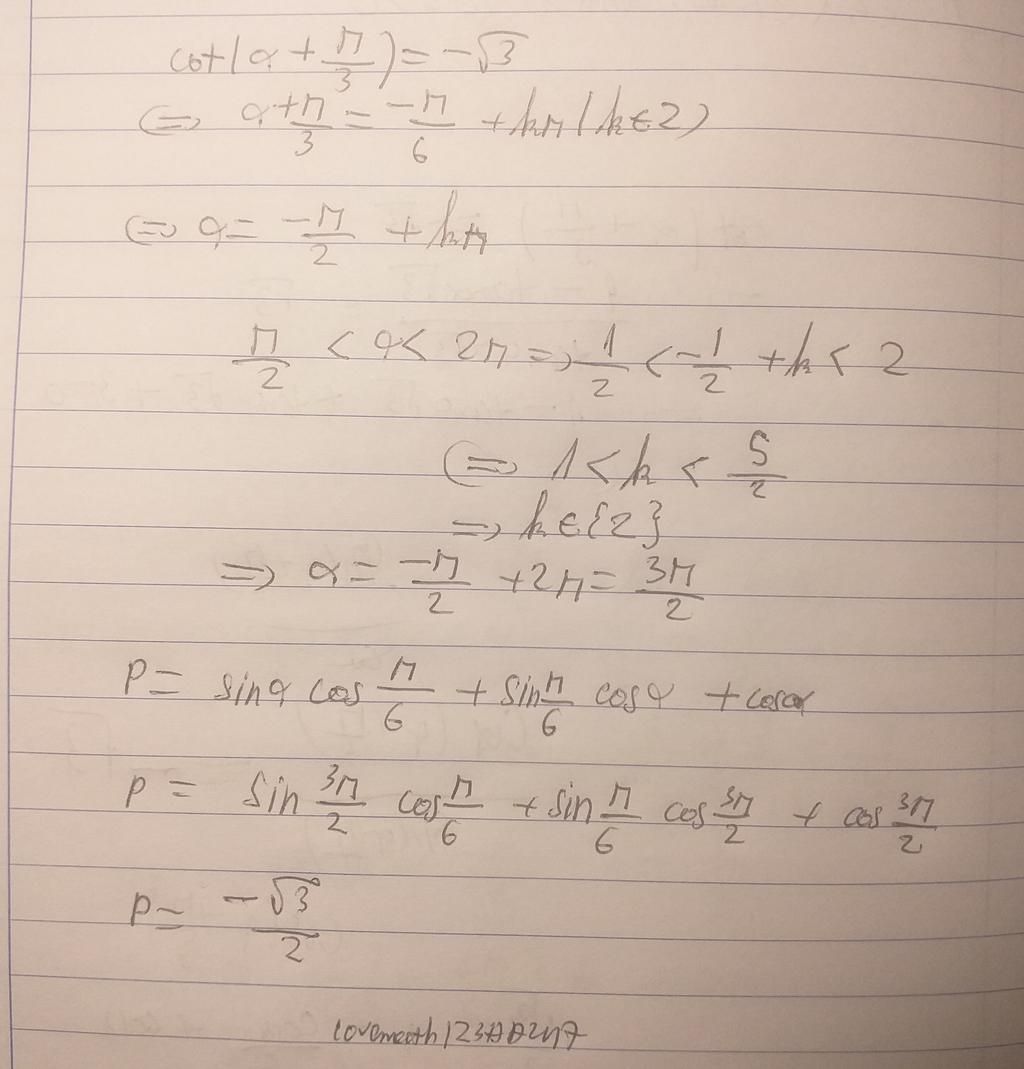 cot(α + π/3) = -√3
⇔ α + π/3 = -π/6 + kπ (k ∈ Z)
⇔ α = -π/2 + kπ
π/2 < α < 2π ⇒ 1/2 < -1/2 + k < 2
⇔ 1 < k < 5/2
⇒ k ∈ {2}
⇒ α = -π/2 + 2π = 3π/2
P = sinα cos π/6 + sin π/6 cosα + cosα
P = sin 3π/2 cos π/6 + sin π/6 cos 3π/2 + cos 3π/2
P = -√3/2